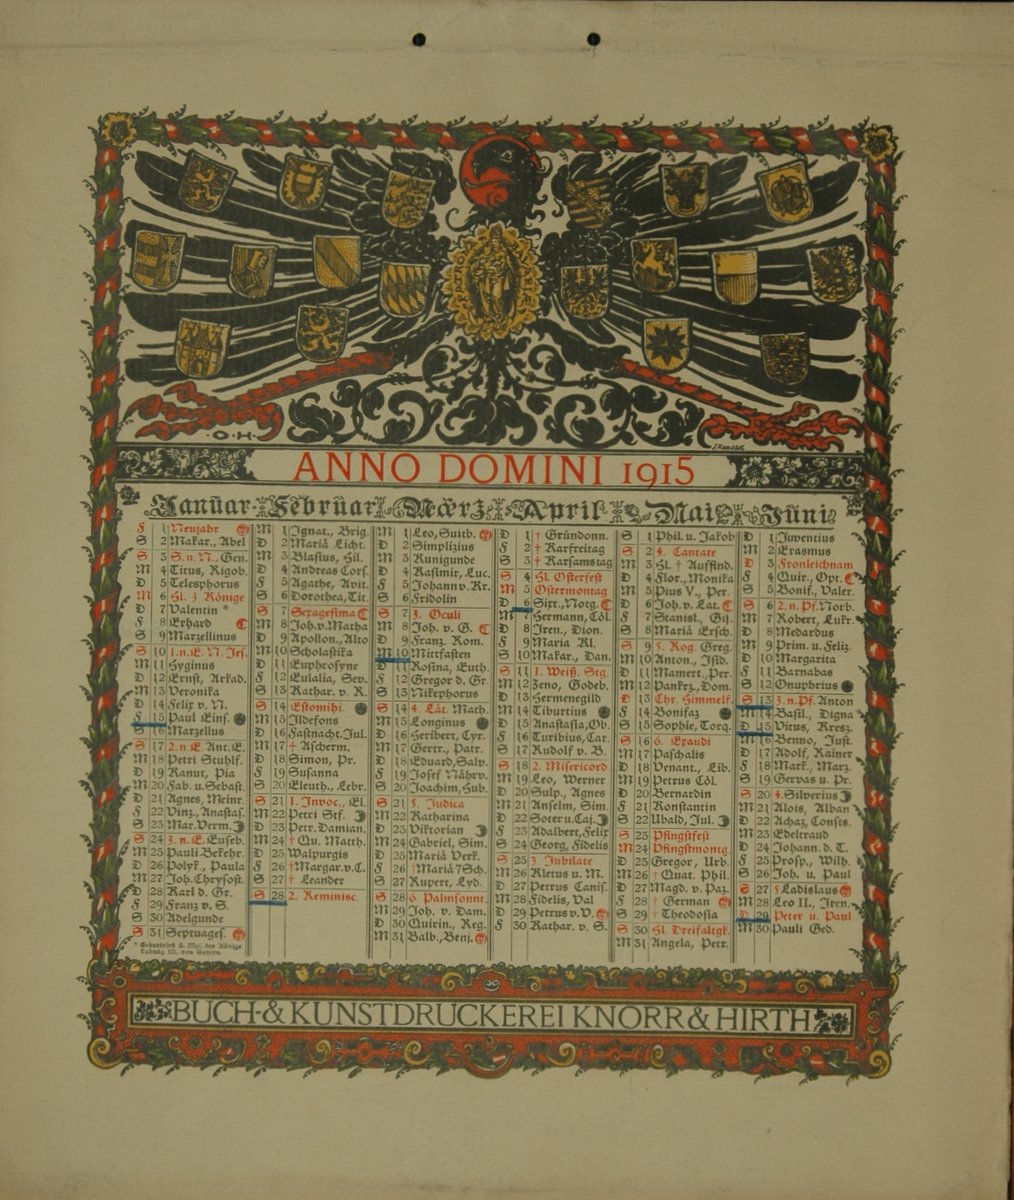 O.H.
ANNO DOMINI 1915
Januar Februar Maerz April Mai Juni
F 1 Neujahr
S 2 Makar., Abel
S 3 S.n.N., Gen.
M 4 Titus, Rigob.
D 5 Telesphorus
M 6 Hl. 3 Könige
D 7 Valentin *
F 8 Erhard
S 9 Marzellinus
S 10 1.n.E. N. Jes.
M 11 Hyginus
D 12 Ernst, Arkad.
M 13 Veronika
D 14 Felix v. N.
F 15 Paul Eins.
S 16 Marzellus
S 17 2.n.E. Ant. E.
M 18 Petri Stuhlf.
D 19 Kanut, Pia
M 20 Fab. u. Sebast.
D 21 Agnes, Meinr.
F 22 Vinz., Anastas.
S 23 Mar. Verm.
S 24 3.n.E. Euseb.
M 25 Pauli Bekehr.
D 26 Polyk., Paula
M 27 Joh. Chrysost.
D 28 Karl d. Gr.
F 29 Franz v. S.
S 30 Adelgunde
S 31 Septuages.
* Geburtsfest S. Maj. des Königs
Ludwig III. von Bayern.
M 1 Ignat., Brig.
D 2 Mariä Licht.
M 3 Blasius, Hil.
D 4 Andreas Cors.
F 5 Agathe, Avit.
S 6 Dorothea, Tit.
S 7 Sexagesima
M 8 Joh. v. Matha
D 9 Apollon., Alto
M 10 Scholastika
D 11 Euphrosyne
F 12 Eulalia, Sev.
S 13 Kathar. v. R.
S 14 Estomihi
M 15 Ildefons
D 16 Fastnacht. Jul.
M 17 † Ascherm.
D 18 Simon, Pr.
F 19 Susanna
S 20 Eleuth., Lebr.
S 21 1. Invoc., El.
M 22 Petri Stf.
D 23 Petr. Damian.
M 24 † Qu. Matth.
D 25 Walpurgis
F 26 † Margar. v. C.
S 27 † Leander
S 28 2. Reminisc.
M 1 Leo, Suitb.
D 2 Simplizius
M 3 Kunigunde
D 4 Kasimir, Luc.
F 5 Johann v. Kr.
S 6 Fridolin
S 7 3. Oculi
M 8 Joh. v. G.
D 9 Franz. Rom.
M 10 Mittfasten
D 11 Rosina, Euth.
F 12 Gregor d. Gr.
S 13 Nikephorus
S 14 4. Lät. Math.
M 15 Longinus
D 16 Heribert, Cyr.
M 17 Gertr., Patr.
D 18 Eduard, Salv.
F 19 Josef Nährv.
S 20 Joachim, Hub.
S 21 5. Judica
M 22 Katharina
D 23 Viktorian
M 24 Gabriel, Sim.
D 25 Mariä Verk.
F 26 † Mariä 7 Sch.
S 27 Rupert, Lyd.
S 28 6 Palmsonnt.
M 29 Joh. v. Dam.
D 30 Quirin., Reg.
M 31 Balb., Benj.
D 1 † Gründonn.
F 2 † Karfreitag
S 3 † Karsamstag
S 4 Hl. Osterfest
M 5 Ostermontag
D 6 Sixt., Notg.
M 7 Hermann, Cöl.
D 8 Iren., Dion.
F 9 Maria Kl.
S 10 Makar., Dan.
S 11 1. Weiß. Stg.
M 12 Zeno, Godeb.
D 13 Hermenegild
M 14 Tiburtius
D 15 Anastasia, Ob.
F 16 Turibius, Car.
S 17 Rudolf v. B.
S 18 2. Misericord
M 19 Leo, Werner
D 20 Sulp., Agnes
M 21 Anselm, Sim.
D 22 Soter u. Caj.
F 23 Adalbert, Felix
S 24 Georg, Fidelis
S 25 3. Jubilate
M 26 Kletus u. M.
D 27 Petrus Canis.
M 28 Fidelis, Val
D 29 Petrus v. V.
F 30 Kathar. v. S.
S 1 Phil. u. Jakob
S 2 4. Cantate
M 3 Hl. † Auffind.
D 4 Flor., Monika
M 5 Pius V., Per.
D 6 Joh. v. Lat.
F 7 Stanisl., Gis.
S 8 Mariä Ersch.
S 9 5. Rog. Greg.
M 10 Anton., Isid.
D 11 Mamert., Per.
M 12 Pankrz., Dom.
D 13 Chr. Himmelf.
F 14 Bonifaz
S 15 Sophie, Torq.
S 16 6. Exaudi
M 17 Paschalis
D 18 Venant., Lib.
M 19 Petrus Cöl.
D 20 Bernardin
F 21 Konstantin
S 22 Ubald, Jul.
S 23 Pfingstfest
M 24 Pfingstmontg.
D 25 Gregor, Urb.
M 26 † Quat. Phil.
D 27 Magd. v. Paz.
F 28 † German
S 29 † Theodosia
S 30 Hl. Dreifaltgk.
M 31 Angela, Petr.
D 1 Juventius
M 2 Erasmus
D 3 Fronleichnam
F 4 Quir., Opt.
S 5 Bonif., Valer.
S 6 2.n.Pf. Norb.
M 7 Robert, Lukr.
D 8 Medardus
M 9 Prim. u. Feliz.
D 10 Margarita
F 11 Barnabas
S 12 Onuphrius
S 13 3.n.Pf. Anton
M 14 Basil., Digna
D 15 Vitus, Kresz.
M 16 Benno, Just.
D 17 Adolf, Rainer
F 18 Mark., Marz.
S 19 Gervas u. Pr.
S 20 4. Silverius
M 21 Alois, Alban
D 22 Achaz, Consts.
M 23 Edeltraud
D 24 Johann. d. T.
F 25 Prosp., Wilh.
S 26 Joh. u. Paul
S 27 5 Ladislaus
M 28 Leo II., Iren.
D 29 Peter u. Paul
M 30 Pauli Ged.
BUCH- & KUNSTDRUCKEREI KNORR & HIRTH